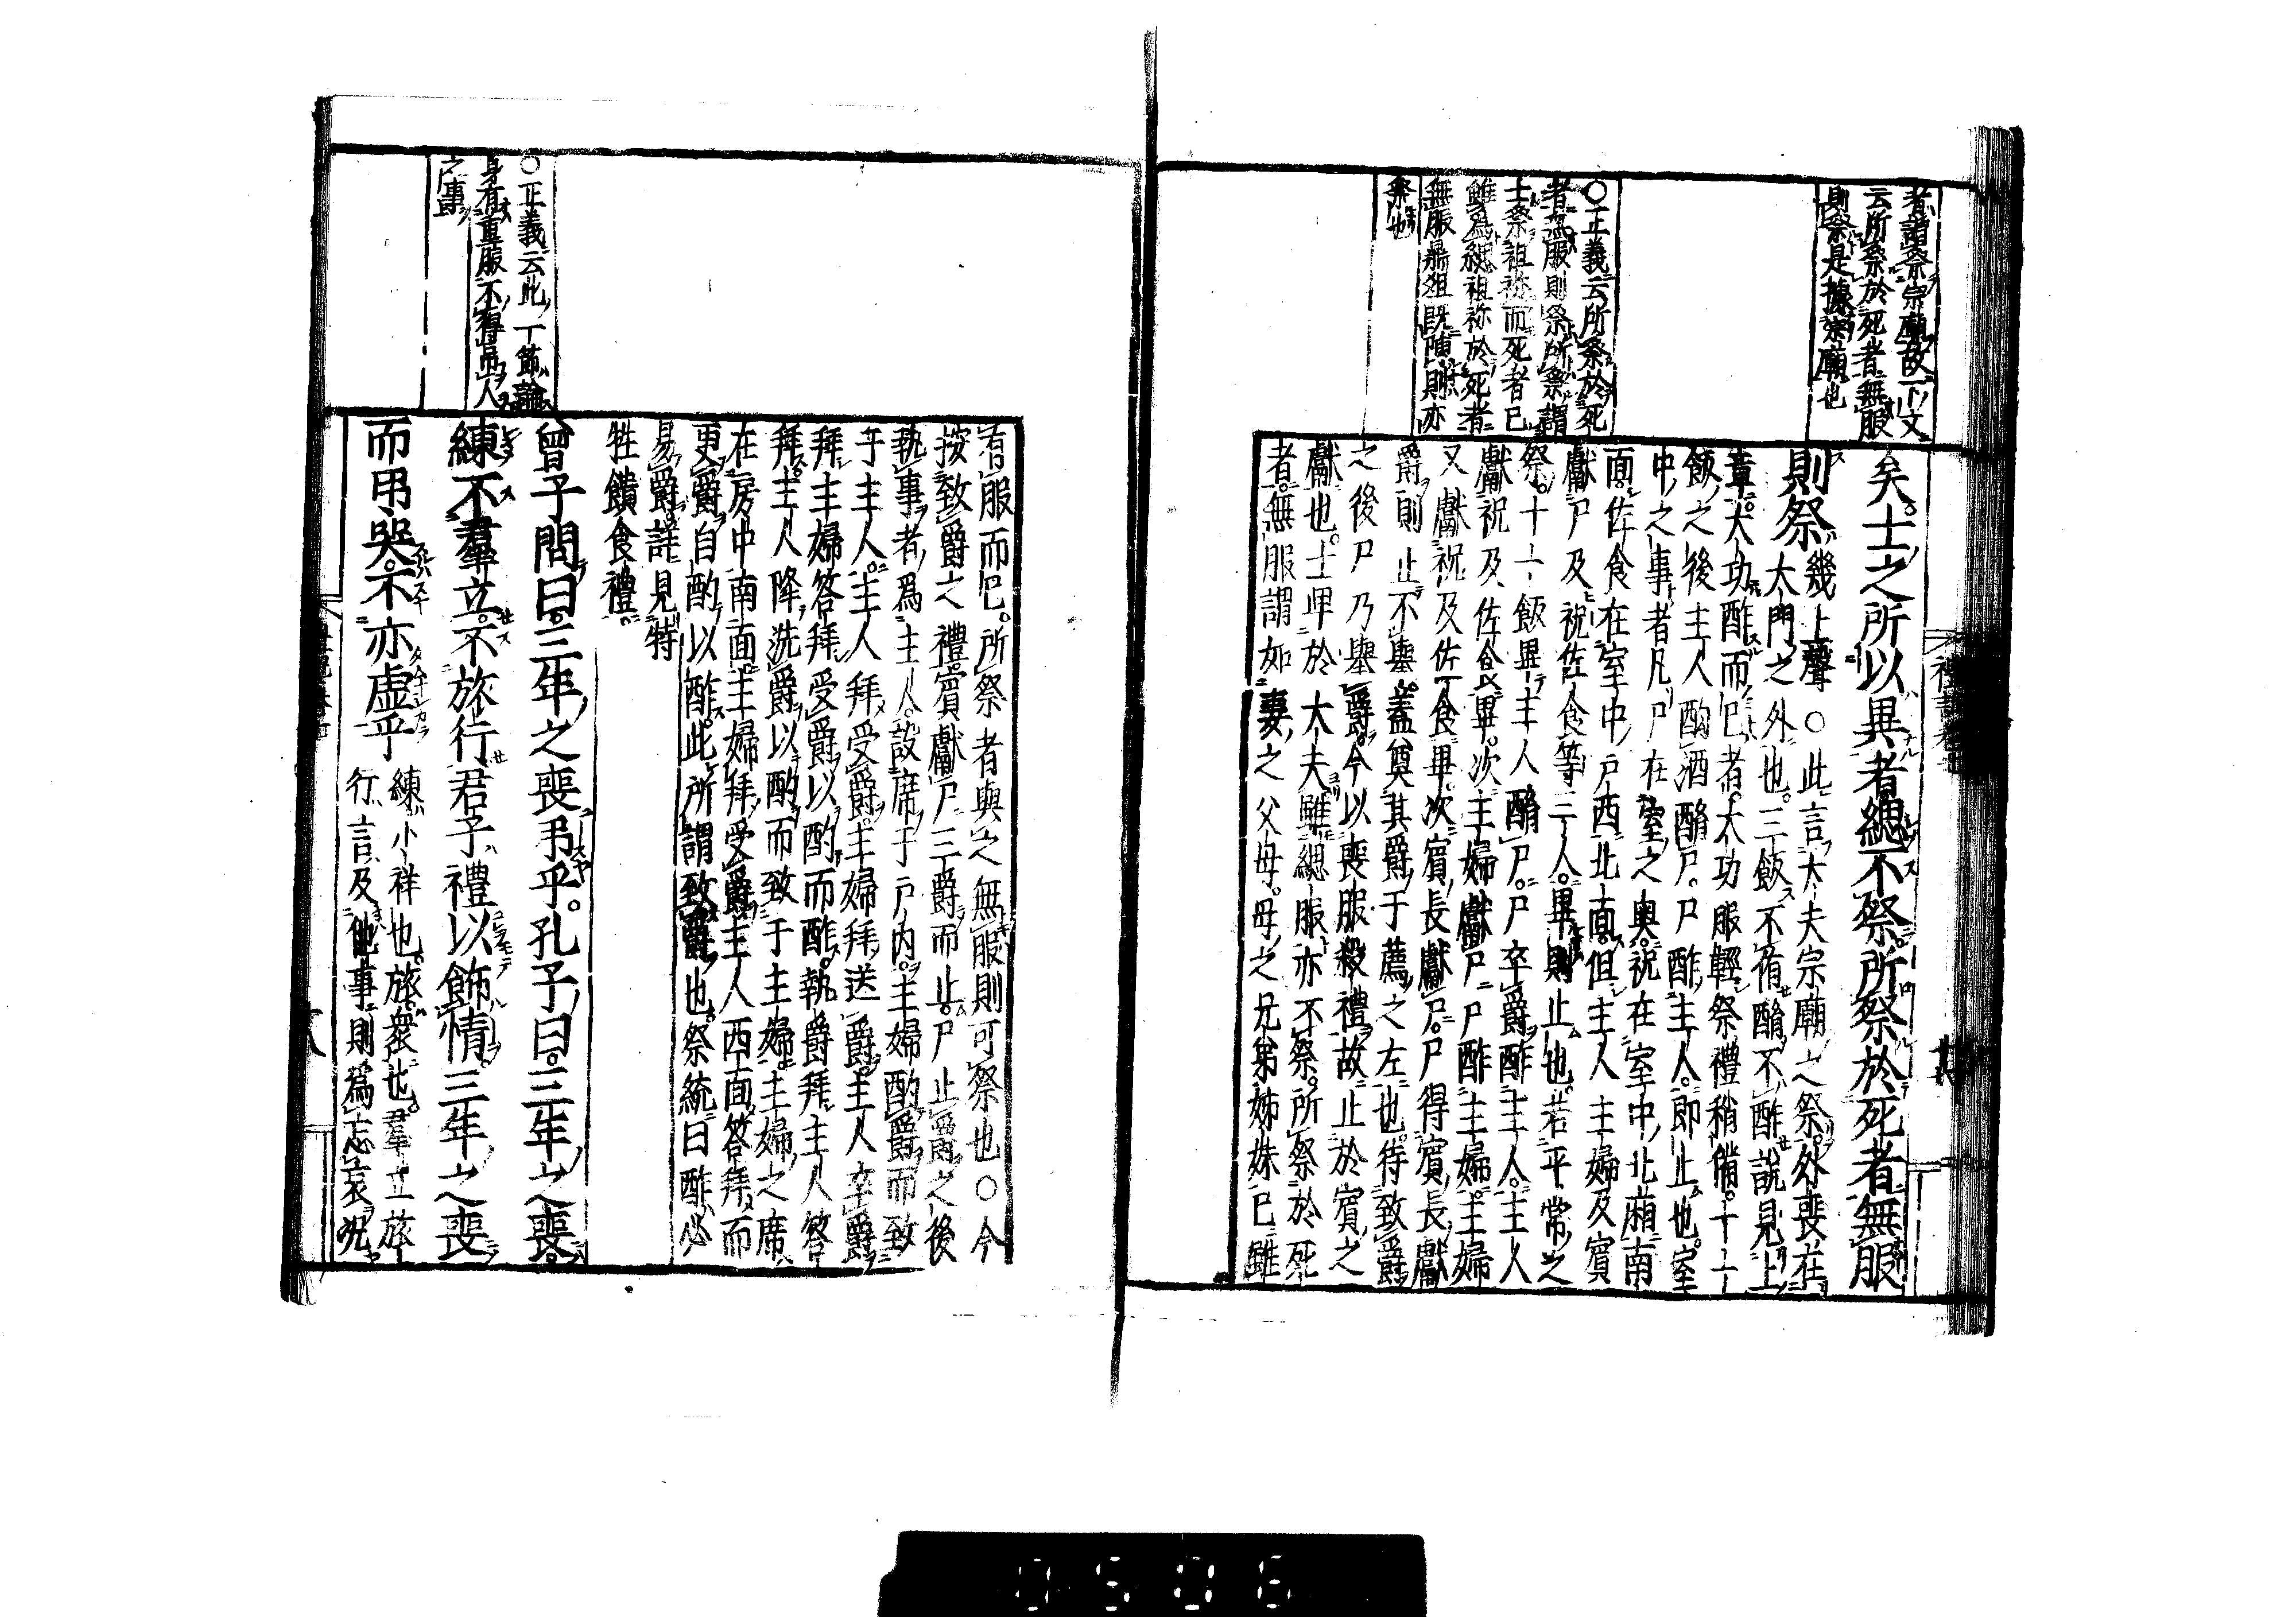 者謂祭宗廟故下文
云所祭於死者無服
則祭是據宗廟也
○正義云所祭於死
者無服則祭所祭謂
士祭祖祢而死者已
雖爲緦祖祢於死者
無服鼎俎既陳則亦
祭也
矣士之所以異者緦不祭所祭於死者無服
則祭
幾上聲○此言大夫宗廟之祭外喪在
大門之外也三飯不侑酳不酢説見上
章大功酢而已者大功服輕祭禮稍備十一
飯之後主人酌酒酳尸尸酢主人即止也室
中之事者凡尸在室之奥祝在室中北廂南
面佐食在室中戸西北面但主人主婦及賓
獻尸及祝佐食等三人畢則止也若平常之
祭十一飯畢主人酳尸尸卒爵酢主人主人
獻祝及佐食畢次主婦獻尸尸酢主婦主婦
又獻祝及佐食畢次賓長獻尸尸得賓長獻
爵則止不舉蓋奠其爵于薦之左也待致爵
之後尸乃舉爵今以喪服殺禮故止於賓之
獻也士卑於大夫雖緦服亦不祭所祭於死
者無服謂如妻之父母母之兄弟姉妹已雖
有服而已所祭者與之無服則可祭也○今
按致爵之禮賓獻尸三爵而止尸止爵之後
執事者爲主人設席于戸内主婦酌爵而致
于主人主人拜受爵主婦拜送爵主人卒爵
拜主婦答拜受爵以酌而酢執爵拜主人答
拜主人降洗爵以酌而致于主婦主婦之席
在房中南面主婦拜受爵主人西面答拜而
更爵自酌以酢此所謂致爵也祭統曰酢必
易爵詳見特
牲饋食禮
○正義云此一節論
身有重服不得吊人
之事
曾子問曰三年之喪弔乎孔子曰三年之喪
練不羣立不旅行君子禮以飾情三年之喪
而弔哭不亦虛乎
練小祥也旅衆也羣立旅
行言及他事則爲忘哀况
0506